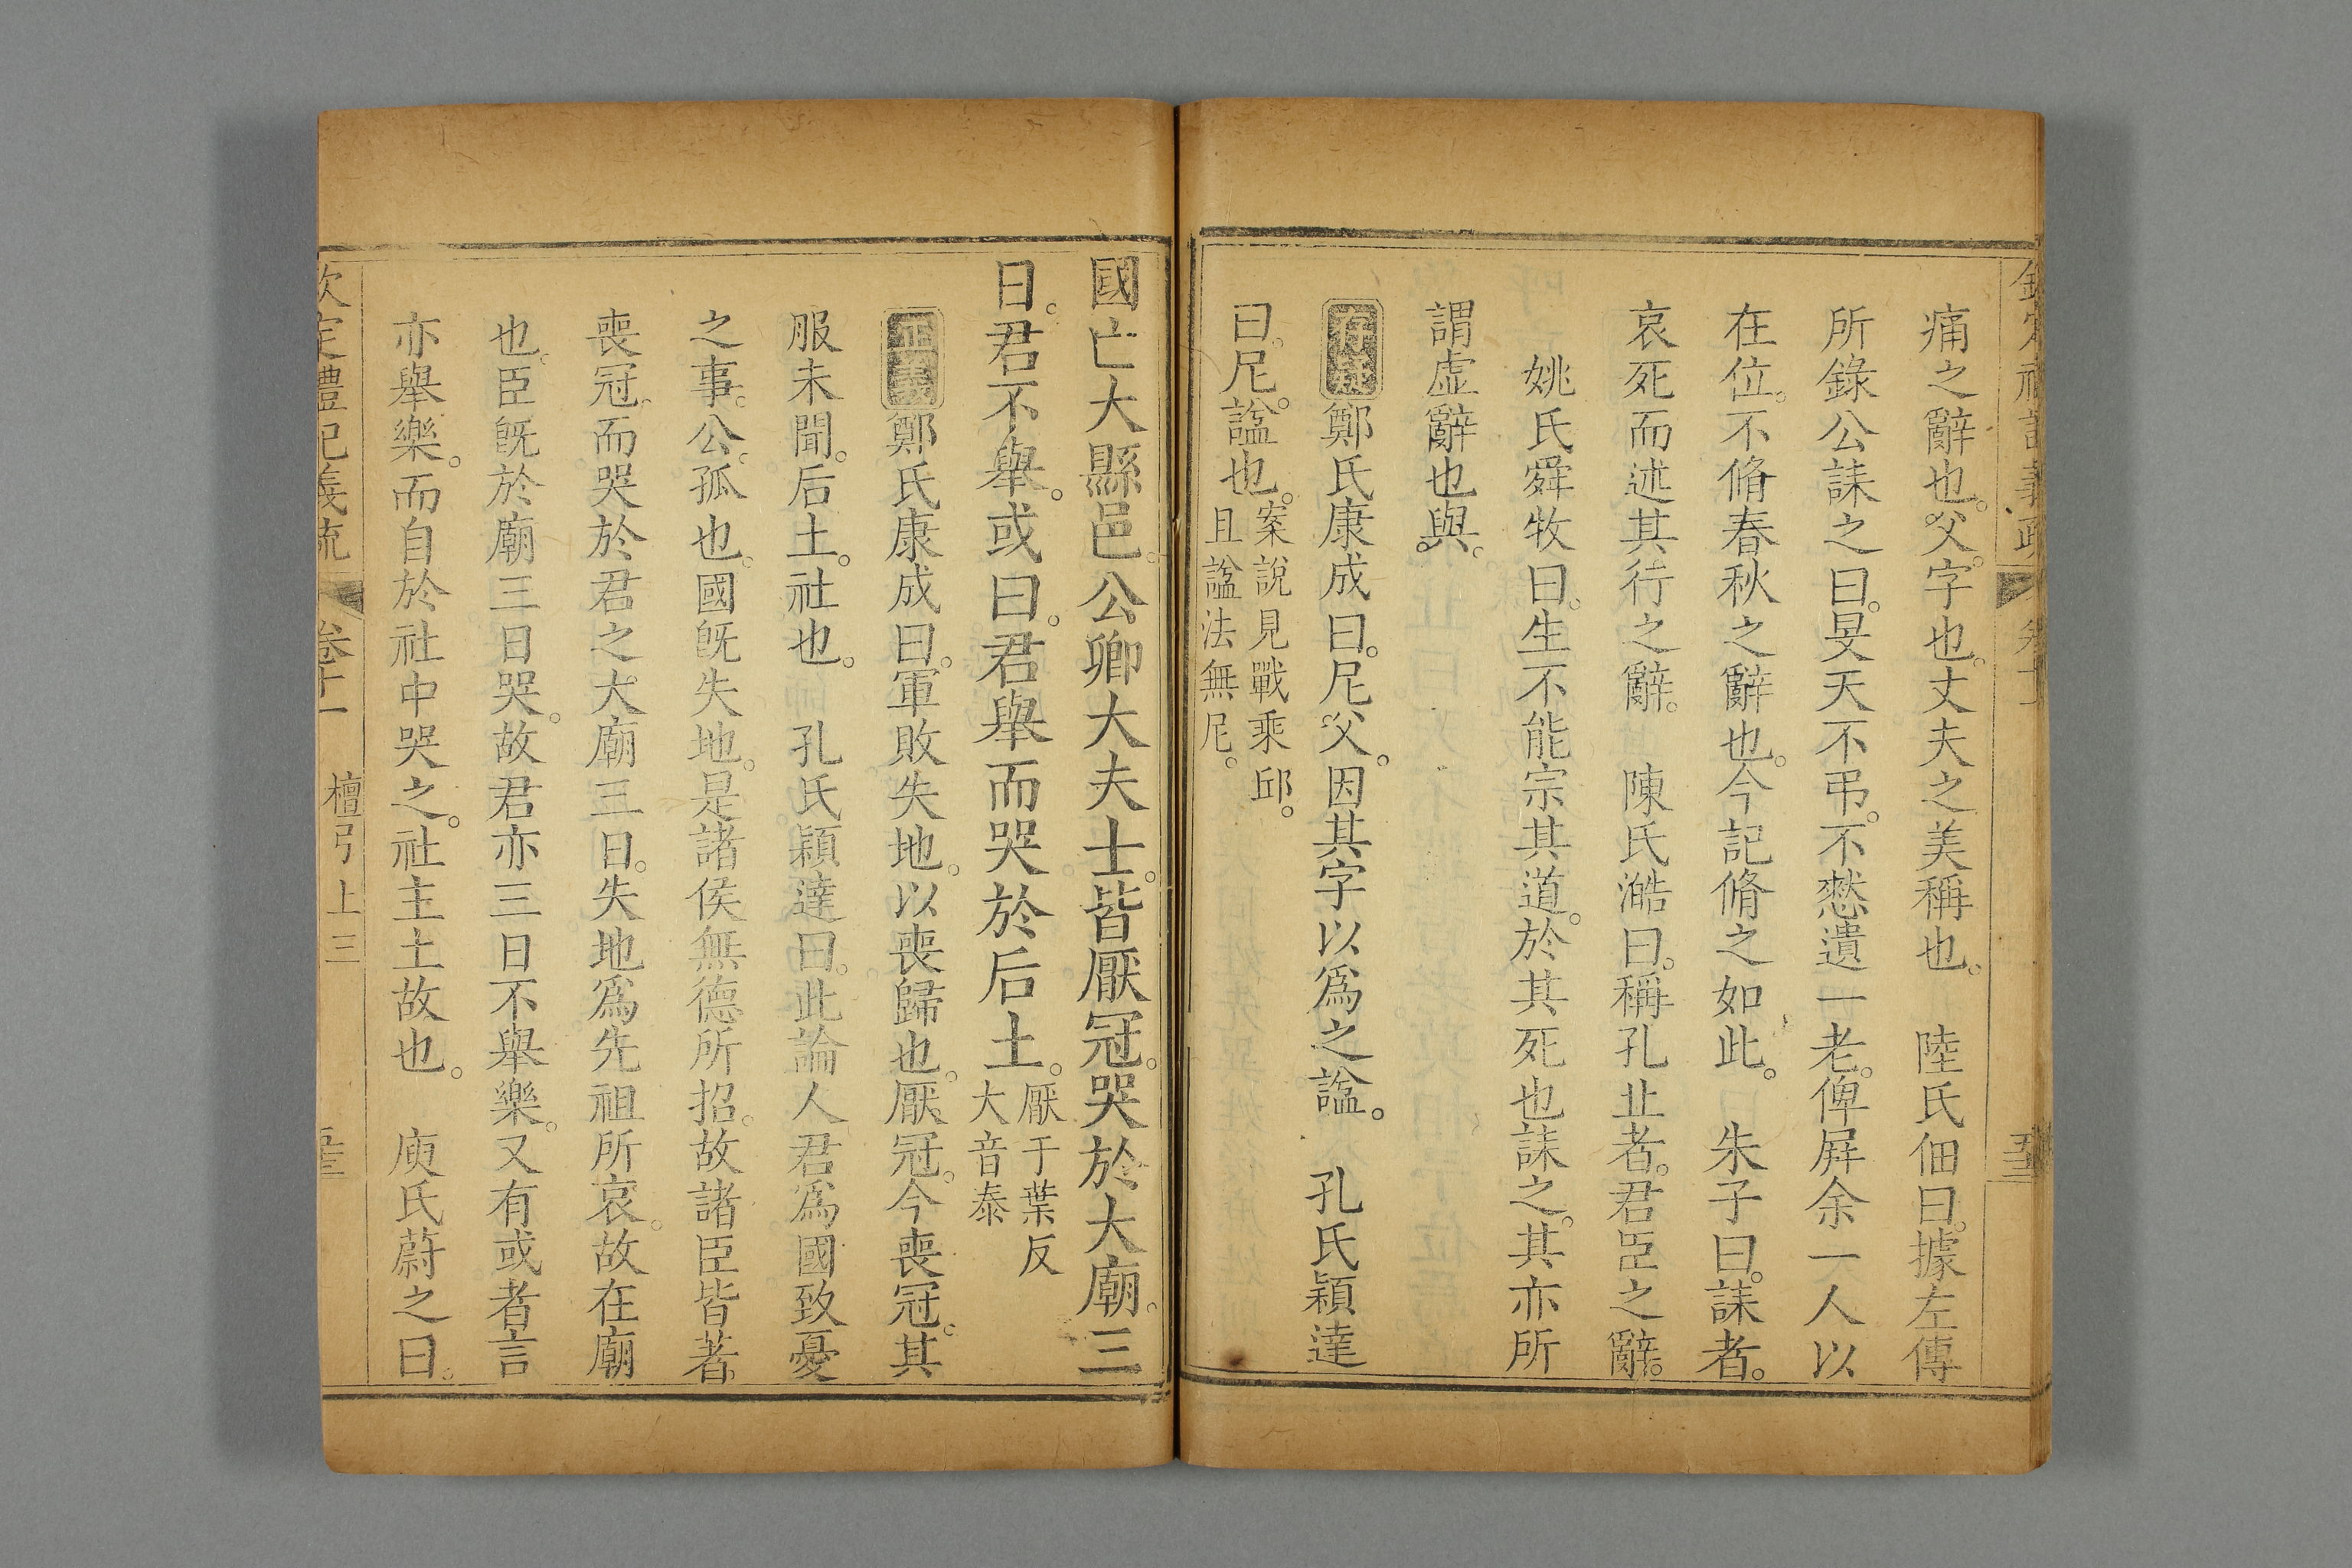 痛之辭也。父。字也。丈夫之美稱也。　陸氏佃曰。據左傳
所錄公誄之曰。旻天不弔。不憖遺一老。俾屛余一人以
在位。不脩春秋之辭也。今記脩之如此。　朱子曰。誄者。
哀死而述其行之辭。　陳氏澔曰。稱孔止者。君臣之辭。
姚氏舜牧曰。生不能宗其道。於其死也誄之。其亦所
謂虛辭也與。
存疑鄭氏康成曰。尼父。因其字以爲之諡。　孔氏穎達
曰。尼。諡也。案說見戰乘邱。
且諡法無尼。
國亡大縣邑。公卿大夫士。皆厭冠。哭於大廟。三
日。君不舉。或曰。君舉而哭於后土。厭于葉反
大音泰
正義鄭氏康成曰。軍敗失地。以喪歸也。厭冠。今喪冠。其
服未聞。后土。社也。　孔氏穎達曰。此論人君爲國致憂
之事。公。孤也。國旣失地。是諸侯無德所招。故諸臣皆著
喪冠。而哭於君之大廟三日。失地爲先祖所哀。故在廟
也。臣旣於廟三日哭。故君亦三日不舉樂。又有或者言
亦舉樂。而自於社中哭之。社主土故也。　庾氏蔚之曰。
欽定禮記義疏　卷十一　檀弓上三